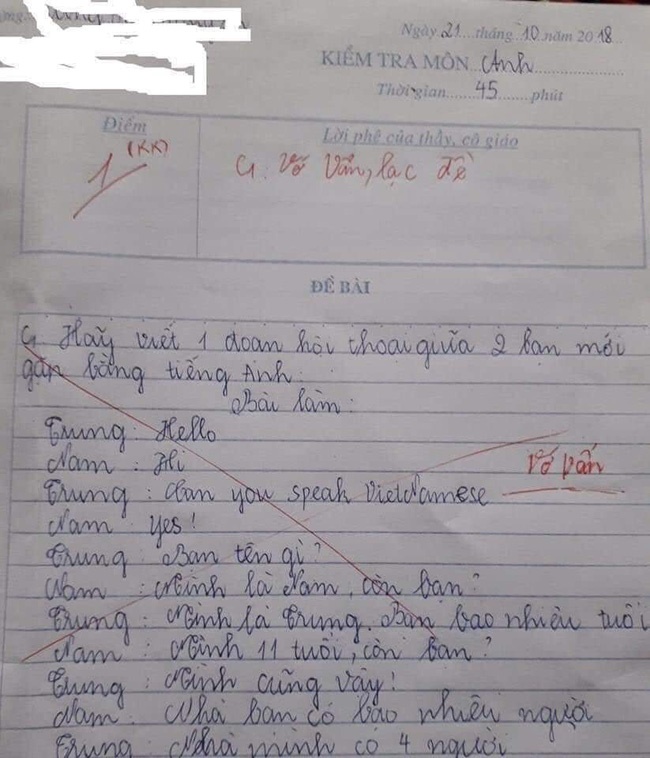 Ngày 21 tháng 10 năm 2018
KIỂM TRA MÔN Anh
Thời gian 45 phút
Điểm
Lời phê của thầy, cô giáo
1 (KK)
G: Vớ Vẩn, lạc đề
ĐỀ BÀI
G Hãy viết 1 đoan hội thoại giữa 2 bạn mới
gặp bằng tiếng Anh.
Bài làm:
Trung: Hello
Nam: Hi
Vớ Vẩn
Trung: Can you speak VietNamese
Nam: Yes!
Trung: Bạn tên gì?
Nam: Mình là Nam, còn bạn?
Trung: Mình là Trung. Bạn bao nhiêu tuổi
Nam: Mình 11 tuổi, còn bạn?
Trung: Mình cũng vậy!
Nam: Nhà bạn có bao nhiêu người
Trung: Nhà mình có 4 người